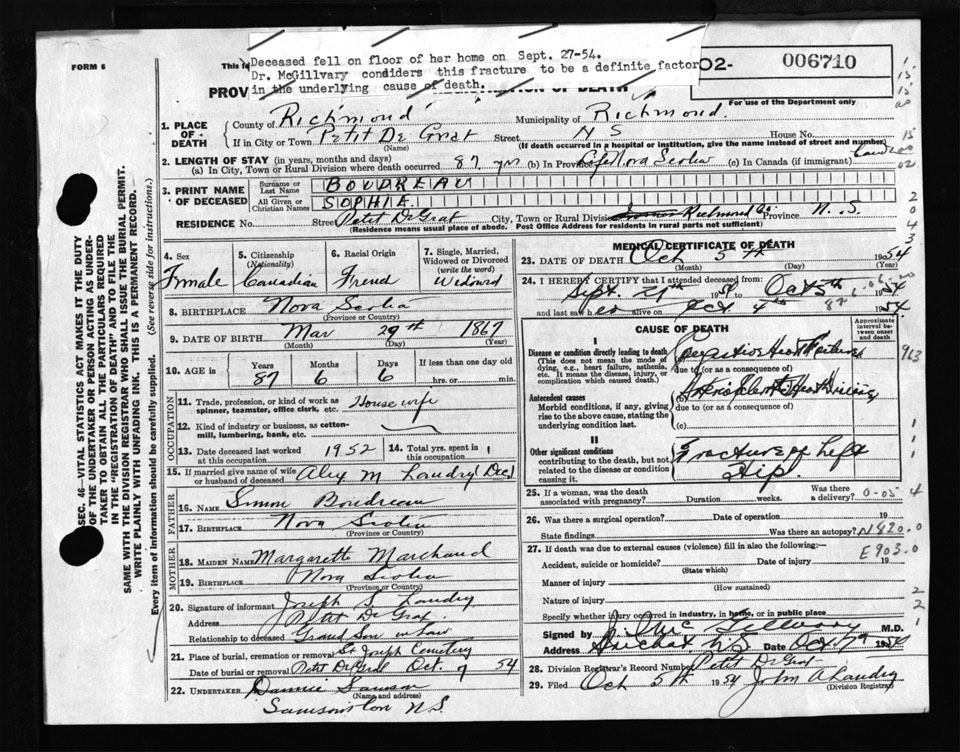 FORM 6
This fa
Deceased fell on floor of her home on Sept. 27-54.
Dr. McGillvary condiders this fracture to be a definite factor
in the underlying cause of death.
PROV
OF DEATH
02-
006710
For use of the Department only
1. PLACE OF DEATH
County of Richmond Municipality of Richmond.
If in City or Town Petit De Grat Street N S House No.
(Name) (If death occurred in a hospital or institution, give the name instead of street and number)
2. LENGTH OF STAY (in years, months and days)
(a) In City, Town or Rural Division where death occurred 87 yrs (b) In Province Nova Scotia (c) In Canada (if immigrant)
3. PRINT NAME OF DECEASED
Surname or Last Name BOUDREAU
All Given or Christian Names SOPHIE
RESIDENCE No. Street Petit DeGrat City, Town or Rural Division Richmond Co Province N. S.
(Residence means usual place of abode. Post Office Address for residents in rural parts not sufficient)
4. Sex
5. Citizenship (Nationality)
6. Racial Origin
7. Single, Married, Widowed or Divorced (write the word)
Female Canadian French Widowed
8. BIRTHPLACE Nova Scotia
(Province or Country)
9. DATE OF BIRTH Mar 29th 1867
(Month) (Day) (Year)
10. AGE in
Years Months Days If less than one day old
87 6 6 hrs. or min.
OCCUPATION
11. Trade, profession, or kind of work as spinner, teamster, office clerk, etc. House wife
12. Kind of industry or business, as cotton-mill, lumbering, bank, etc.
13. Date deceased last worked at this occupation 1952
14. Total yrs. spent in this occupation
15. If married give name of wife or husband of deceased Alex M Landry Decd
FATHER
16. NAME Simon Boudreau
17. BIRTHPLACE Nova Scotia
(Province or Country)
MOTHER
18. MAIDEN NAME Margareth Marchand
19. BIRTHPLACE Nova Scotia
(Province or Country)
20. Signature of informant Joseph S. Landry
Address Petit De Grat
Relationship to deceased Grand Son in Law
21. Place of burial, cremation or removal St Joseph Cemetery
Date of burial or removal Petit DeGrat Oct. 7 54
22. UNDERTAKER Dannie Samson
(Name and address)
Samsonston N S.
MEDICAL CERTIFICATE OF DEATH
23. DATE OF DEATH Oct 5th 1954
(Month) (Day) (Year)
24. I HEREBY CERTIFY that I attended deceased from:
Sept. 27th 1954 Oct 5th 1954
alive on Oct. 4th 1954
CAUSE OF DEATH
Approximate interval between onset and death
I
Disease or condition directly leading to death
(This does not mean the mode of dying, e.g., heart failure, asthenia, etc. It means the disease, injury, or complication which caused death.)
Congestive Heart Failure
due to (or as a consequence of)
Antecedent causes
Morbid conditions, if any, giving rise to the above cause, stating the underlying condition last.
Arteriosclerotic Heart Disease
due to (or as a consequence of)
(c)
II
Other significant conditions
contributing to the death, but not related to the disease or condition causing it.
Fracture of Left
Hip
25. If a woman, was the death associated with pregnancy? Duration weeks. Was there a delivery?
26. Was there a surgical operation? Date of operation 19
State findings Was there an autopsy? N820.0
27. If death was due to external causes (violence) fill in also the following:— E903.0
Accident, suicide or homicide? Date of injury 19
(State which)
Manner of injury
(How sustained)
Nature of injury
Specify whether injury occurred in industry, in home, or in public place
Signed by M.D.
Address Arichat, N S Date Oct 7 1954
28. Division Registrar's Record Number Petit DeGrat
29. Filed Oct 5th 1954 John A Landry
(Division Registrar)
SEC. 46—VITAL STATISTICS ACT MAKES IT THE DUTY OF THE UNDERTAKER OR PERSON ACTING AS UNDERTAKER TO OBTAIN ALL THE PARTICULARS REQUIRED IN THE "REGISTRATION OF DEATH" AND TO FILE THE SAME WITH THE DIVISION REGISTRAR WHO SHALL ISSUE THE BURIAL PERMIT.
WRITE PLAINLY WITH UNFADING INK. THIS IS A PERMANENT RECORD.
Every item of information should be carefully supplied. (See reverse side for instructions.)